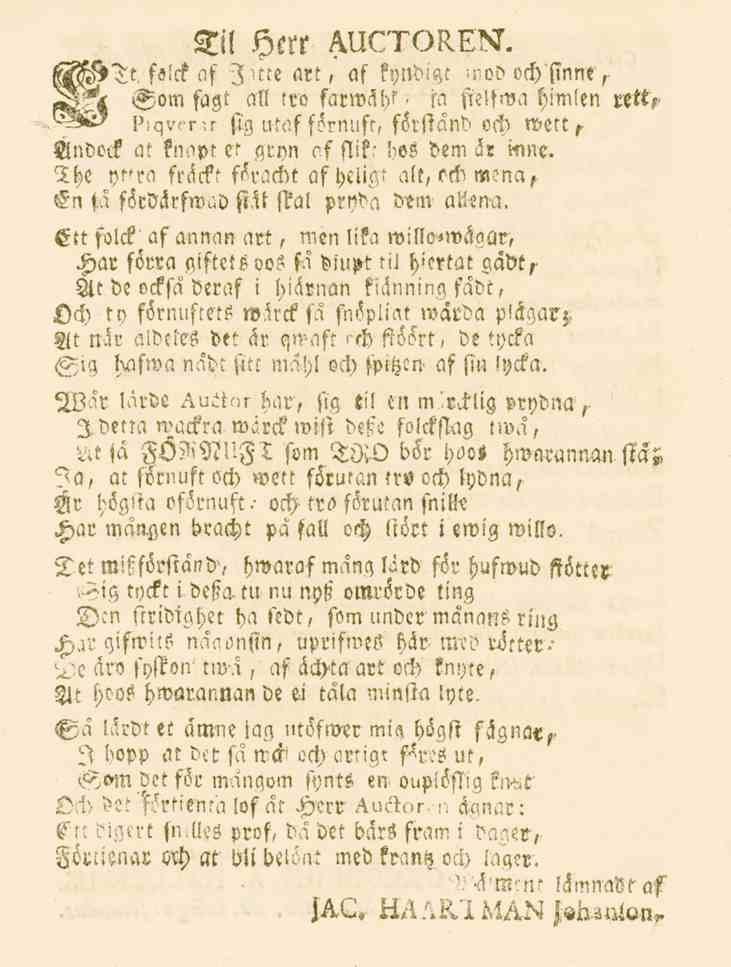 Til Herr AUCTOREN.
Ett folck af Jätte art, af kyndigt mod och sinne,
Som sagt all tro farwähl, ja sielfwa himlen rett,
Piqverar sig utaf förnuft, förstånd och wett,
Ändock at knapt et gryn af slikt hos dem är inne.
The yttra fräckt föracht af heligt alt, och mena,
En så fördärfwad siäl skal pryda dem allena.
Ett folck af annan art, men lika willo-wägar,
Har förra giftets oos så diupt til hiertat gådt,
At de också deraf i hiärnan kiänning fådt,
Och ty förnuftets wärck så snöpliat wärda plägar;
At när aldeles det är qwaft och stöört, de tycka
Sig hafwa nådt sitt mähl och spitzen af sin lycka.
Wår lärde Auctor har, sig til en märcklig prydna,
I detta wackra wärck wist deße folckslag twå,
At så FÖRNUFT som TRO bör hoos hwarannan stå;
Ja, at förnuft och wett förutan tro och lydna,
Är högsta oförnuft: och tro förutan snille
Har mången bracht på fall och stört i ewig wille.
Tet mißförstånd, hwaraf mång lärd för hufwud stötter
Sig tyckt i deßa tu nu nyß omrörde ting
Den stridighet ha sedt, som under månans ring
Har gifwits någonsin, uprifwes här med rötter:
De äro syskon twå, af ächta art och knyte,
At hoos hwarannan de ei tåla minsta lyte.
Så lärdt et ämne jag utöfwer mig högst fägnar,
I hopp at det så wäl och artigt föres ut,
Som det för mångom synts en ouplöslig knut
Och det förtienta lof åt Herr Auctoren ägnar:
Ett digert snilles prof, då det bärs fram i dager,
Förtienar och at bli belönt med krantz och lager.
lämnadt af
JAC. HAARTMAN Johanson.